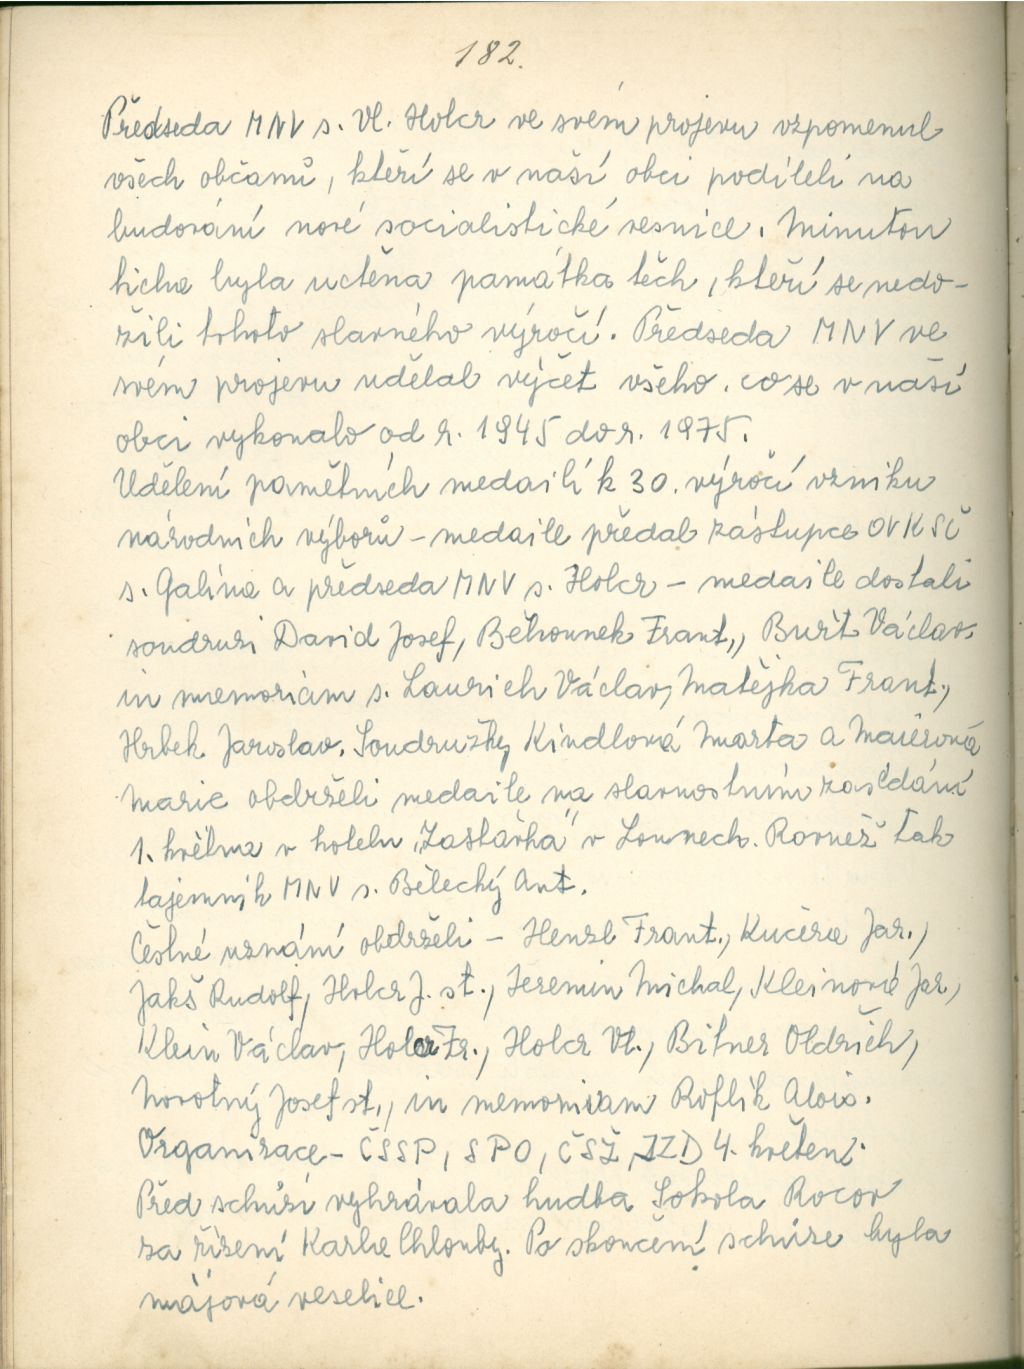 182.
Předseda MNV s. Vl. Holcr ve svém projevu vzpomenul
všech občanů, kteří se v naší obci podíleli na
budování nové socialistické vesnice. Minutou
ticha byla uctěna památka těch, kteří se nedo-
žili tohoto slavného výročí. Předseda MNV ve
svém projevu udělal výčet všeho. co se v naší
obci vykonalo od r. 1945 do r. 1975.
Udělení pamětních medailí k 30. výročí vzniku
národních výborů – medaile předal zástupce OV KSČ
s. Galina a předseda MNV s. Holcr – medaile dostali
soudruzi David Josef, Běhounek Frant., Buřt Václav.
in memoriam s. Laurich Václav, Matějka Frant.,
Hrbek Jaroslav. Soudružky Kindlová Marta a Maierová
Marie obdrželi medaile na slavnostním zasedání
1. května v hotelu „Zastávka" v Lounech. Rovněž tak
tajemník MNV s. Bělecký Ant.
Čestné uznání obdrželi – Henzl Frant., Kučera Jar.,
Jakš Rudolf, Holcr J. st., Jeremin Michal, Kleinová Jar,
Klein Václav, Holcr Fr., Holcr Vl., Bitner Oldřich,
Novotný Josef st., in memoriam Roflík Alois.
Organizace – ČSSP, SPO, ČSŽ, JZD 4. květen.
Před schůzí vyhrávala hudba Sokola Rocov
za řízení Karla Chlouby. Po skončení schůze byla
májová veselice.